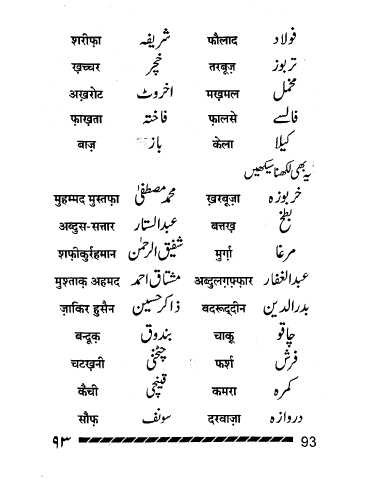 शरीफ़ा شریفہ फ़ौलाद فولاد
ख़च्चर خچر तरबूज़ تربوز
अख़रोट اخروٹ मख़मल مخمل
फ़ाख़ता فاختہ फ़ालसे فالسے
बाज़ باز केला کیلا
یہ بھی لکھنا سیکھیں
मुहम्मद मुस्तफ़ा محمد مصطفیٰ ख़रबूज़ा خربوزہ
अब्दुस-सत्तार عبدالستار बत्तख़ بطخ
शफ़ीकुर्रहमान شفیق الرحمٰن मुर्ग़ा مرغا
मुश्ताक़ अहमद مشتاق احمد अब्दुलग़फ़्फ़ार عبدالغفار
ज़ाकिर हुसैन ذاکر حسین बदरूद्दीन بدرالدین
बन्दूक़ بندوق चाक़ू چاقو
चटख़नी چٹخنی फ़र्श فرش
कैची قینچی कमरा کمرہ
सौफ़ سونف दरवाज़ा دروازہ
۹۳ 93